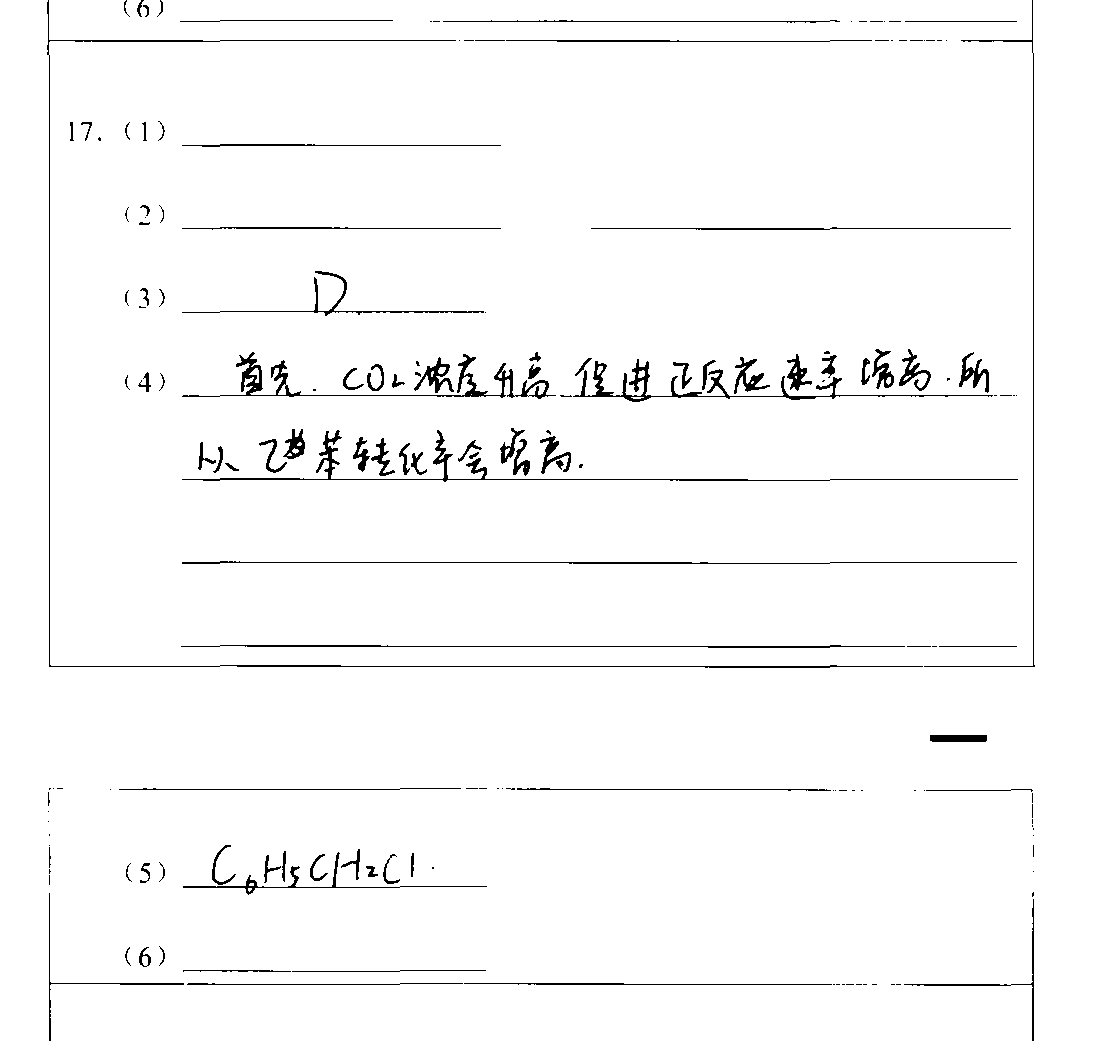 (6)
17. (1)
(2)
(3) D
(4) 首先. CO₂浓度升高 促进正反应速率增高. 所
以 乙苯转化率会增高.
(5) C₆H₅CH₂Cl.
(6)